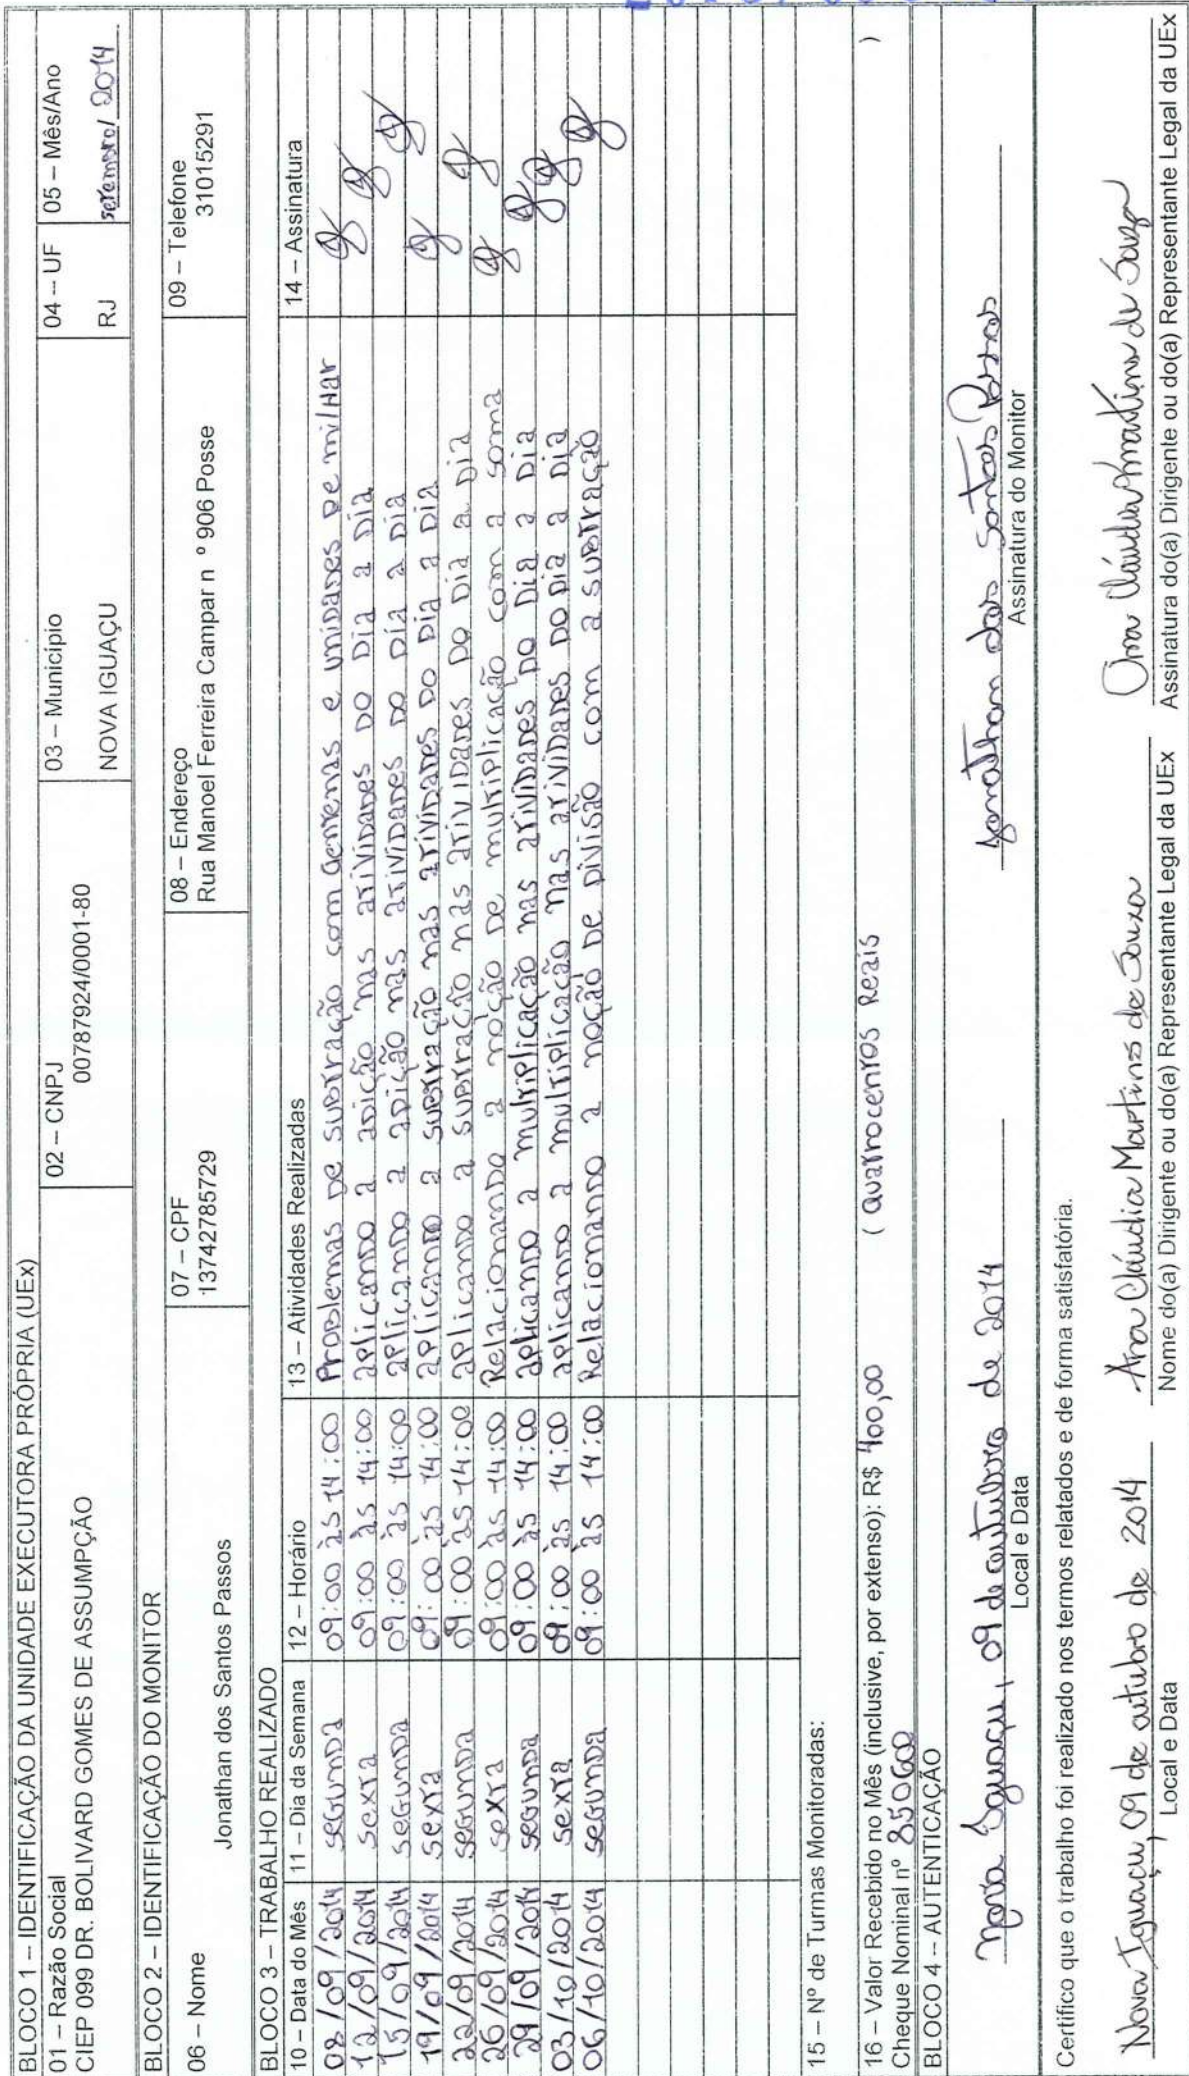 BLOCO 1 – IDENTIFICAÇÃO DA UNIDADE EXECUTORA PRÓPRIA (UEx)
01 – Razão Social
CIEP 099 DR. BOLIVARD GOMES DE ASSUMPÇÃO
02 – CNPJ
00787924/0001-80
03 – Município
NOVA IGUAÇU
04 – UF
RJ
05 – Mês/Ano
setembro/ 2014
BLOCO 2 – IDENTIFICAÇÃO DO MONITOR
06 – Nome
Jonathan dos Santos Passos
07 – CPF
13742785729
08 – Endereço
Rua Manoel Ferreira Campar n º 906 Posse
09 – Telefone
31015291
BLOCO 3 – TRABALHO REALIZADO
10 – Data do Mês 11 – Dia da Semana 12 – Horário 13 – Atividades Realizadas 14 – Assinatura
08/09/2014 segunda 09:00 às 14:00 Problemas de subtração com centenas e unidades de milhar
12/09/2014 sexta 09:00 às 14:00 aplicando a adição nas atividades do dia a dia
15/09/2014 segunda 09:00 às 14:00 aplicando a adição nas atividades do dia a dia
19/09/2014 sexta 09:00 às 14:00 aplicando a subtração nas atividades do dia a dia
22/09/2014 segunda 09:00 às 14:00 aplicando a subtração nas atividades do dia a dia
26/09/2014 sexta 09:00 às 14:00 Relacionando a noção de multiplicação com a soma
29/09/2014 segunda 09:00 às 14:00 aplicando a multiplicação nas atividades do dia a dia
03/10/2014 sexta 09:00 às 14:00 aplicando a multiplicação nas atividades do dia a dia
06/10/2014 segunda 09:00 às 14:00 Relacionando a noção de divisão com a subtração
15 – Nº de Turmas Monitoradas:
16 – Valor Recebido no Mês (inclusive, por extenso): R$ 400,00 ( Quatrocentos Reais )
Cheque Nominal nº 850600
BLOCO 4 – AUTENTICAÇÃO
Nova Iguaçu, 09 de outubro de 2014 Jonathan dos Santos Passos
Local e Data Assinatura do Monitor
Certifico que o trabalho foi realizado nos termos relatados e de forma satisfatória.
Nova Iguaçu, 09 de outubro de 2014 Ana Cláudia Martins de Souza Ana Cláudia Martins de Souza
Local e Data Nome do(a) Dirigente ou do(a) Representante Legal da UEx Assinatura do(a) Dirigente ou do(a) Representante Legal da UEx